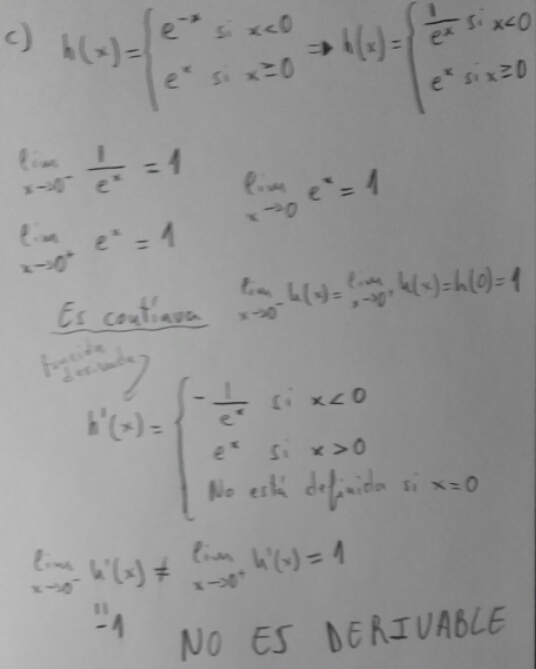 c) h(x) = { e^-x si x<0 ⇒ h(x) = { 1/e^x si x<0
e^x si x≥0 e^x si x≥0
lim x→0^- 1/e^x = 1
lim x→0 e^x = 1
lim x→0^+ e^x = 1
Es continua lim x→0^- h(x) = lim x→0^+ h(x) = h(0) = 1
función
derivada
h'(x) = { -1/e^x si x<0
e^x si x>0
No está definida si x=0
lim x→0^- h'(x) ≠ lim x→0^+ h'(x) = 1
"
-1
NO ES DERIVABLE